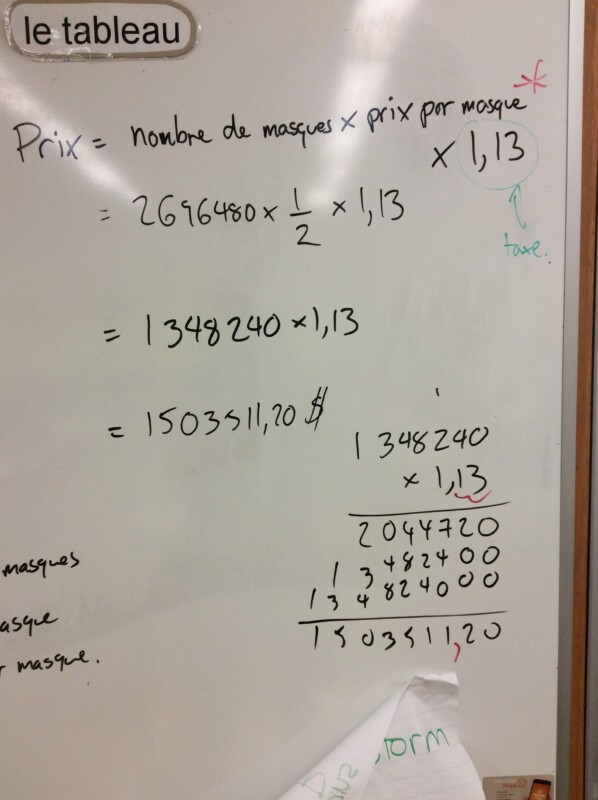 le tableau
Prix = nombre de masques x prix por masque *
x 1,13
taxe.
= 2696480 x 1/2 x 1,13
= 1348240 x 1,13
= 1503511,20 $
1
1348240
x 1,13
2044720
13482400
134824000
1503511,20
masques
asque
masque.
torm